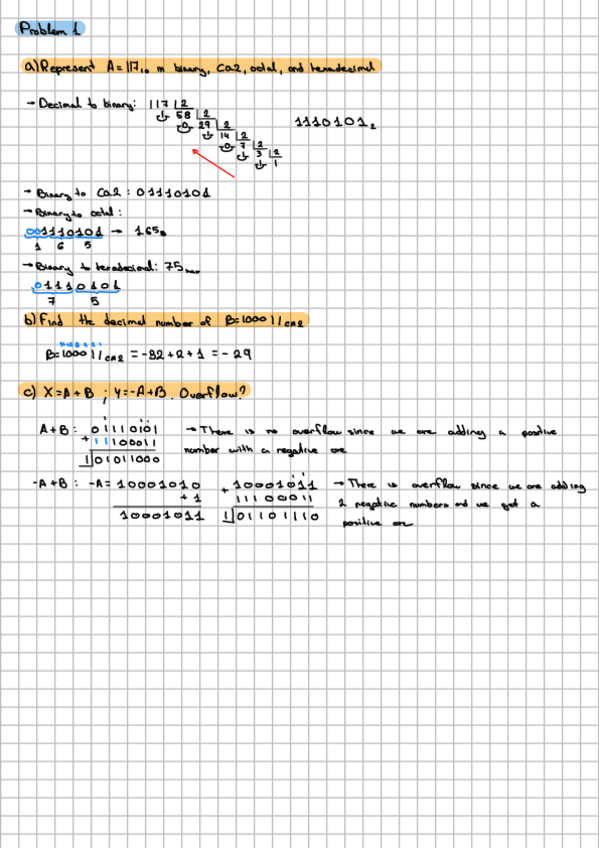 Problem 1
a) Represent A=117₁₀ in binary, Ca2, octal, and hexadecimal
→ Decimal to binary: 117 | 2
1 58 | 2
0 29 | 2
1 14 | 2
0 7 | 2
1 3 | 2
1 1
1110101₂
→ Binary to Ca2: 01110101
→ Binary to octal:
001110101 → 165₈
1 6 5
→ Binary to hexadecimal: 75
01110101
7 5
b) Find the decimal number of B=100011 CA2
B=100011 CA2 = -32+2+1 = -29
c) X=A+B ; Y=-A+B. Overflow?
A+B: 01110101 → There is no overflow since we are adding a positive
+ 11100011 number with a negative one
1|01011000
-A+B: -A= 10001010 + 10001011 → There is overflow since we are adding
+ 1 11100011 2 negative numbers and we get a
10001011 1|01101110 positive one